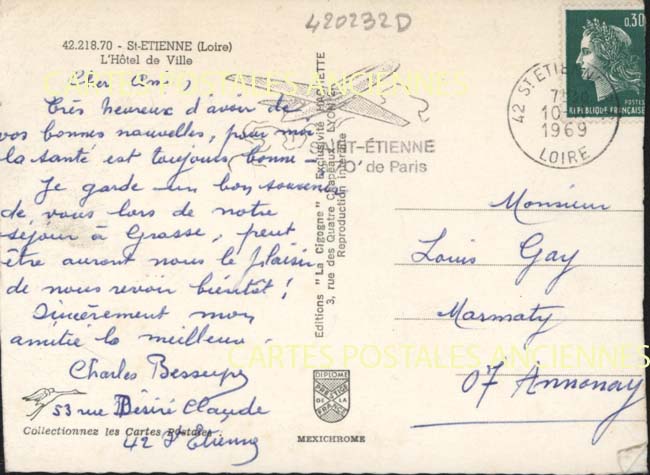 420232D
42.218.70 - St-ETIENNE (Loire)
L'Hôtel de Ville
CARTES POSTALES ANCIENNES
Cher
Très heureux d'avoir de
vos bonnes nouvelles, pour moi
la santé est toujours bonne -
Je garde un bon souvenir
de vous lors de notre
séjour à Grasse, peut
être auront nous le plaisir
de nous revoir bientôt !
Sincèrement mon
amitié la meilleure.
Charles
53 rue Désiré Claude
42 St Etienne
Collectionnez les Cartes Postales
Editions "La Cigogne" - Exclusivité
3, rue des Quatre Chapeaux - LYON
Reproduction interdite
SAINT-ÉTIENNE
de Paris
0.30
POSTES
REPUBLIQUE FRANÇAISE
42 ST ETIENNE
10-
1969
LOIRE
Monsieur
Louis Gay
Marmaty
07 Annonay
CARTES POSTALES ANCIENNES
DIPLOME
PRESTIGE
DE LA
FRANCE
MEXICHROME